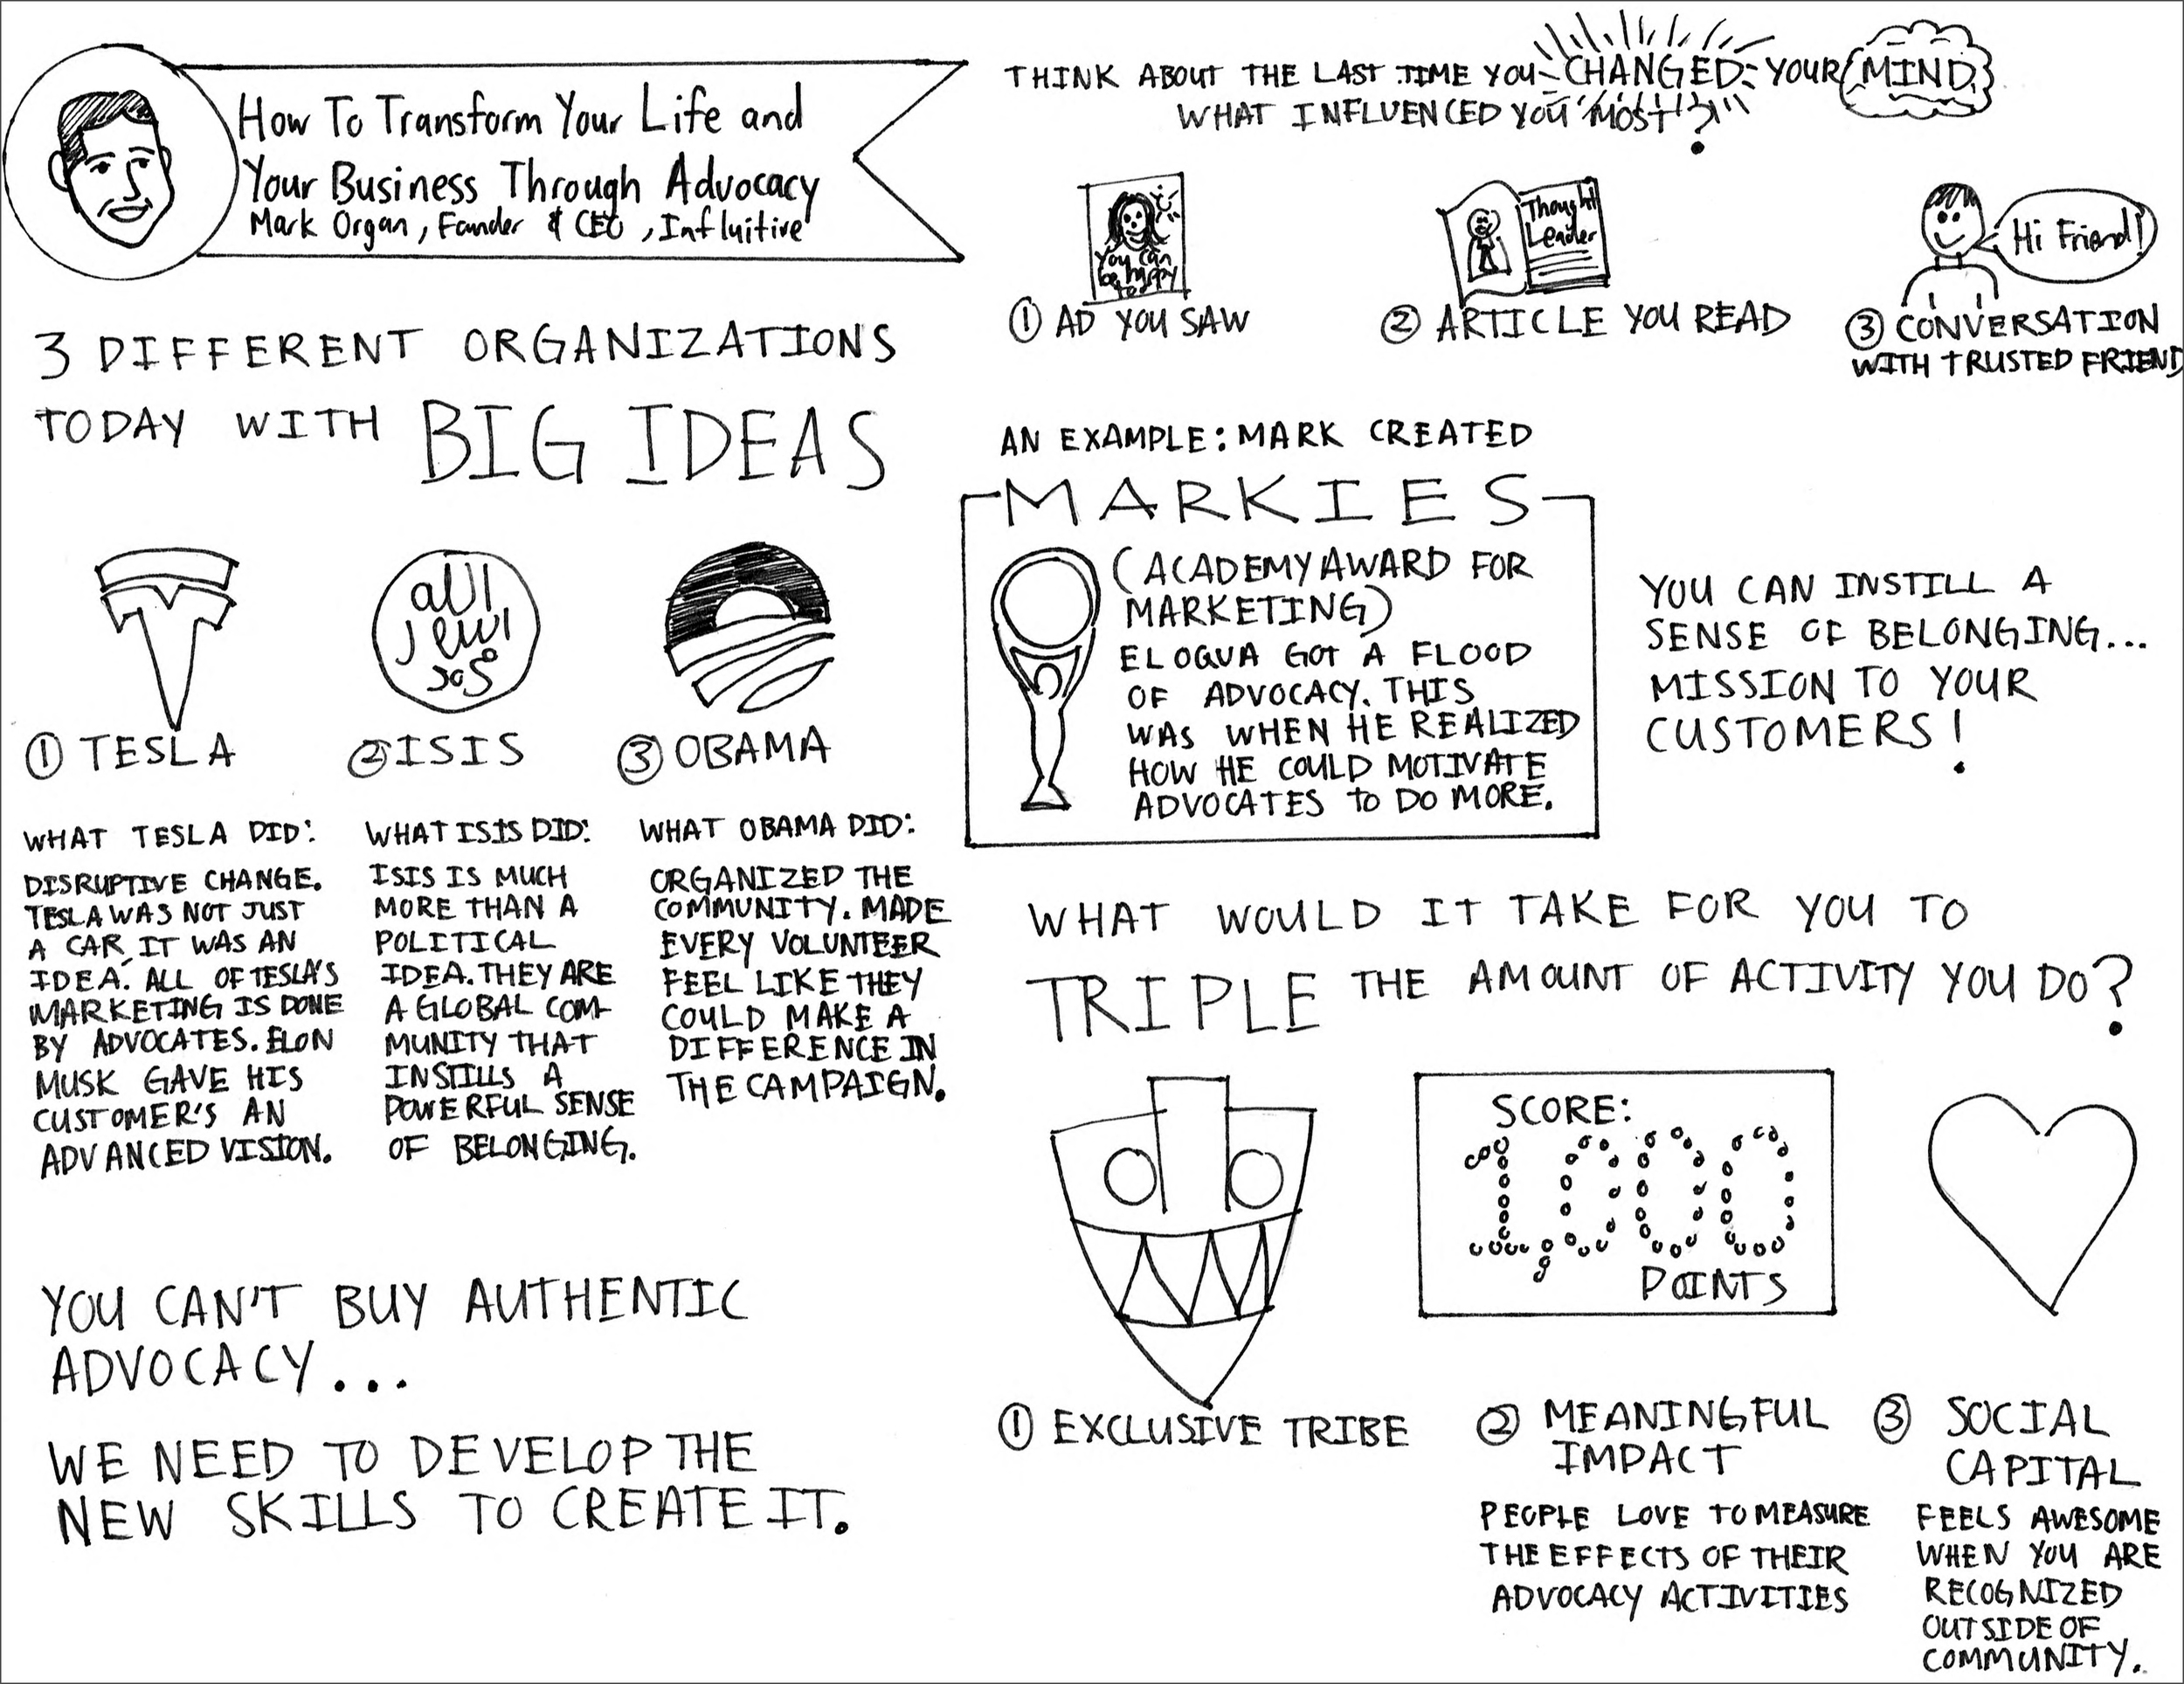 How To Transform Your Life and
Your Business Through Advocacy
Mark Organ, Founder & CEO, Influitive
3 DIFFERENT ORGANIZATIONS
TODAY WITH BIG IDEAS
① TESLA
② ISIS
③ OBAMA
WHAT TESLA DID:
DISRUPTIVE CHANGE.
TESLA WAS NOT JUST
A CAR, IT WAS AN
IDEA. ALL OF TESLA'S
MARKETING IS DONE
BY ADVOCATES. ELON
MUSK GAVE HIS
CUSTOMER'S AN
ADVANCED VISION.
WHAT ISIS DID:
ISIS IS MUCH
MORE THAN A
POLITICAL
IDEA. THEY ARE
A GLOBAL COM-
MUNITY THAT
INSTILLS A
POWERFUL SENSE
OF BELONGING.
WHAT OBAMA DID:
ORGANIZED THE
COMMUNITY. MADE
EVERY VOLUNTEER
FEEL LIKE THEY
COULD MAKE A
DIFFERENCE IN
THE CAMPAIGN.
YOU CAN'T BUY AUTHENTIC
ADVOCACY...
WE NEED TO DEVELOP THE
NEW SKILLS TO CREATE IT.
THINK ABOUT THE LAST TIME YOU CHANGED YOUR MIND
WHAT INFLUENCED YOU MOST?
You can
be happy
too
① AD YOU SAW
Thought
Leader
② ARTICLE YOU READ
Hi Friend!
③ CONVERSATION
WITH TRUSTED FRIEND
AN EXAMPLE: MARK CREATED
MARKIES
(ACADEMY AWARD FOR
MARKETING)
ELOQUA GOT A FLOOD
OF ADVOCACY. THIS
WAS WHEN HE REALIZED
HOW HE COULD MOTIVATE
ADVOCATES TO DO MORE.
YOU CAN INSTILL A
SENSE OF BELONGING...
MISSION TO YOUR
CUSTOMERS!
WHAT WOULD IT TAKE FOR YOU TO
TRIPLE THE AMOUNT OF ACTIVITY YOU DO?
① EXCLUSIVE TRIBE
SCORE:
1,000
POINTS
② MEANINGFUL
IMPACT
PEOPLE LOVE TO MEASURE
THE EFFECTS OF THEIR
ADVOCACY ACTIVITIES
③ SOCIAL
CAPITAL
FEELS AWESOME
WHEN YOU ARE
RECOGNIZED
OUTSIDE OF
COMMUNITY.